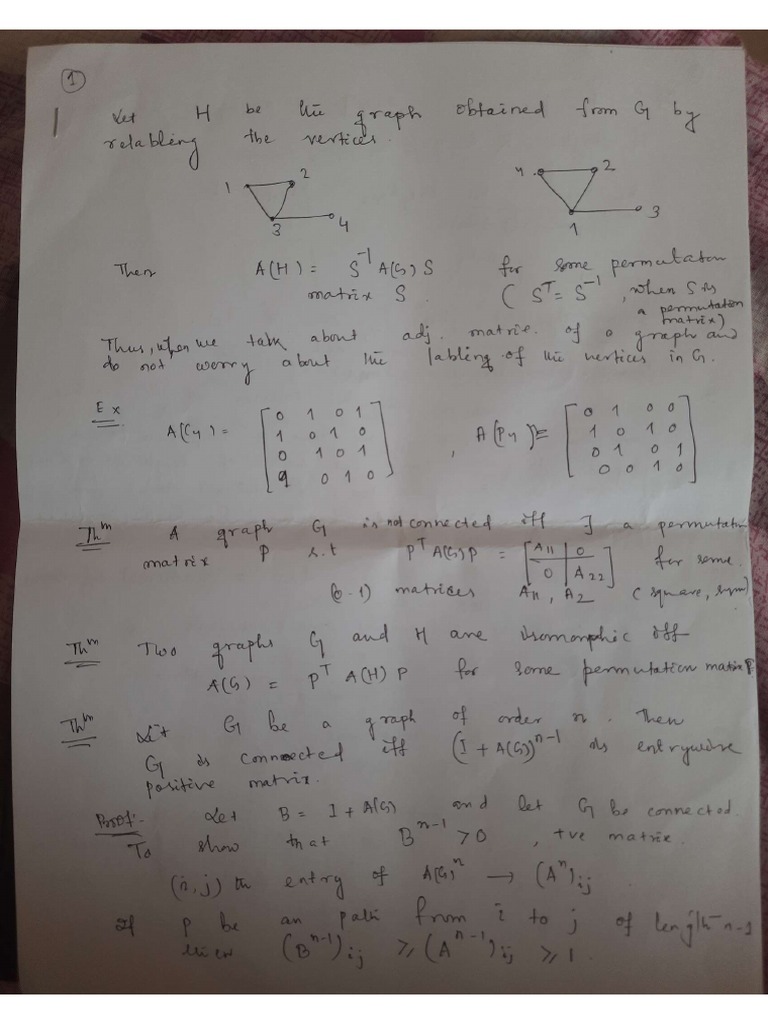 1
Let H be the graph obtained from G by
relabling the vertices.
1 2 3 4
4 2 1 3
Then A(H) = S⁻¹ A(G) S for some permutation
matrix S. ( Sᵀ = S⁻¹, when S is
a permutation
matrix)
Thus, when we talk about adj. matrix of a graph and
do not worry about the labling of the vertices in G.
Ex
A(C4) = [ 0 1 0 1
1 0 1 0
0 1 0 1
1 0 1 0 ] , A(P4) = [ 0 1 0 0
1 0 1 0
0 1 0 1
0 0 1 0 ]
Thm A graph G is not connected iff ∃ a permutation
matrix P s.t Pᵀ A(G) P = [ A11 | 0
0 | A22 ] for some
(0-1) matrices A11, A2 ( square, sym)
Thm Two graphs G and H are isomorphic iff
A(G) = Pᵀ A(H) P for some permutation matrix P.
Thm Let G be a graph of order n. Then
G is connected iff (I + A(G))ⁿ⁻¹ is entrywise
positive matrix.
Proof:- Let B = I + A(G) and let G be connected.
To show that Bⁿ⁻¹ > 0, +ve matrix.
(i, j) th entry of A(G)ⁿ → (Aⁿ)ij
If P be an path from i to j of length n-1
then (Bⁿ⁻¹)ij ≥ (Aⁿ⁻¹)ij ≥ 1.